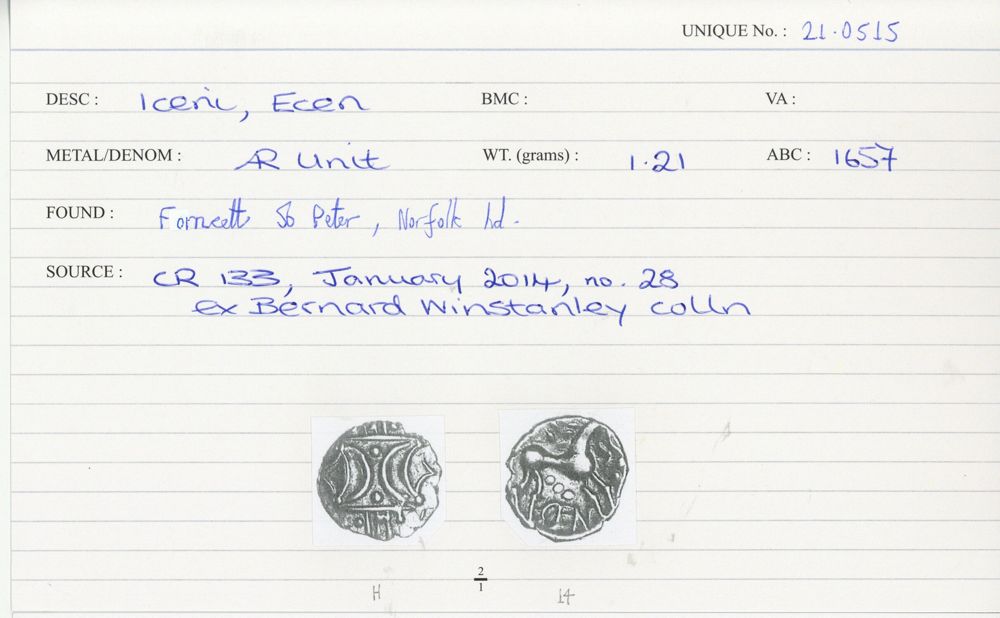 UNIQUE No. : 21.0515
DESC : Icenic, Ecen BMC : VA :
METAL/DENOM : AR Unit WT. (grams) : 1.21 ABC : 1657
FOUND : Forncett St Peter, Norfolk
SOURCE : CR 133, January 2014, no. 28
ex Bernard Winstanley colln
2
1
H 14